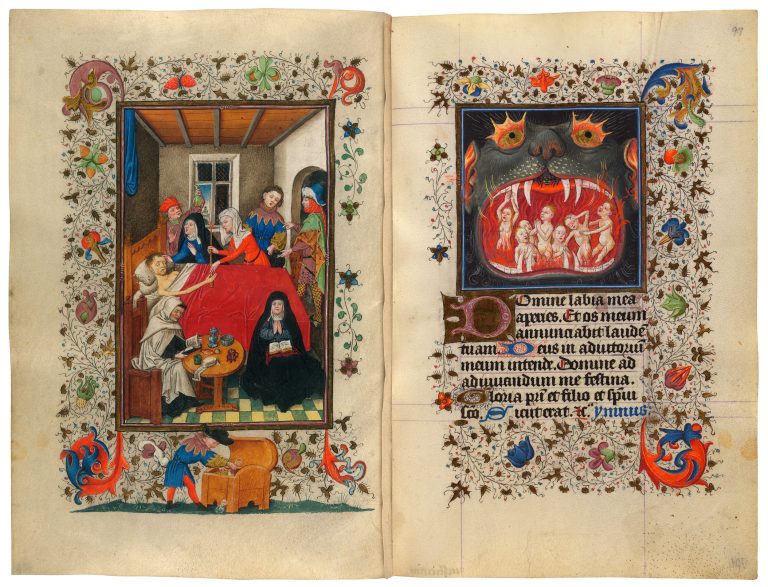 97
Domine labia mea
aperies. Et os meum
annunciabit laude
tuam Deus in adiutoriū
meum intende. Domine ad
adiuuandum me festina.
Gloria pr̄i et filio et spiui
sc̄o. Sicut erat. ⁊c. ymnus